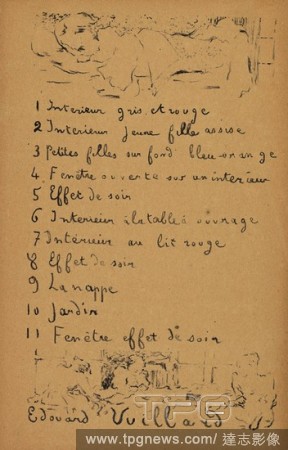 1 Interieur gris et rouge
2 Interieur jeune fille assise
3 Petites filles sur fond bleu-orange
4 Fenêtre ouverte sur un interieur
5 Effet de soir
6 Interieur la table à ouvrage
7 Intérieur au lit rouge
8 Effet de soir
9 La nappe
10 Jardin
11 Fenêtre effet de soir
Edouard Vuillard
TPG
www.tpgnews.com / 達志影像